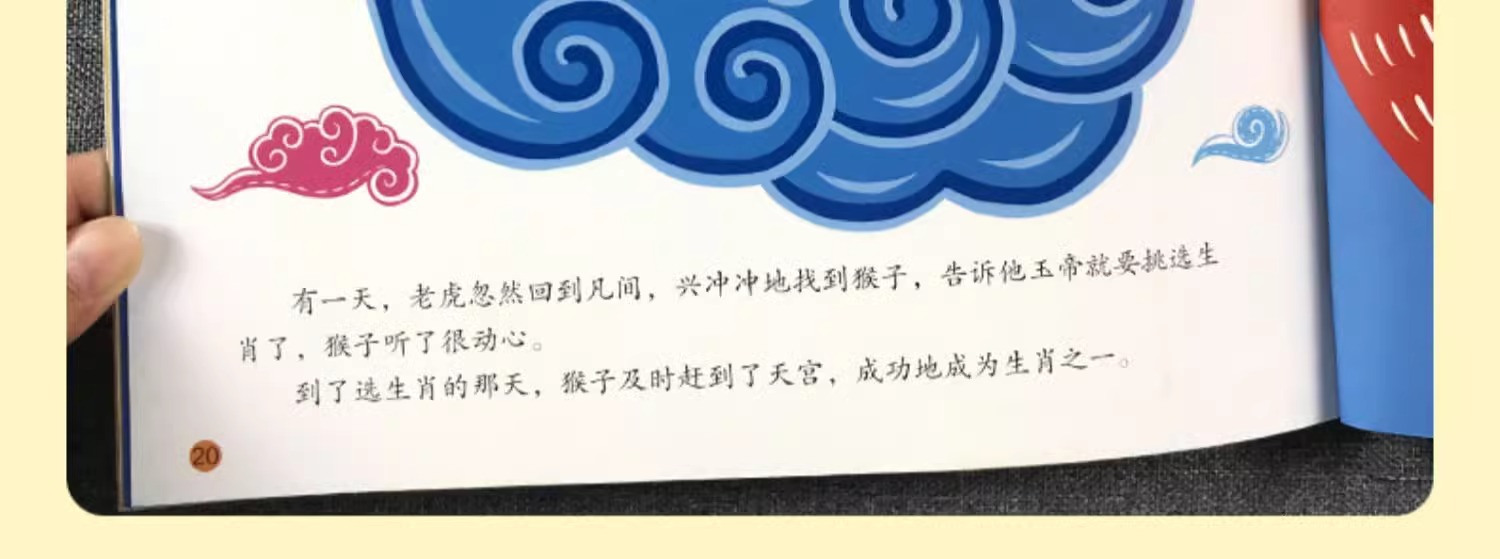 有一天，老虎忽然回到凡间，兴冲冲地找到猴子，告诉他玉帝就要挑选生
肖了，猴子听了很动心。
到了选生肖的那天，猴子及时赶到了天宫，成功地成为生肖之一。
20